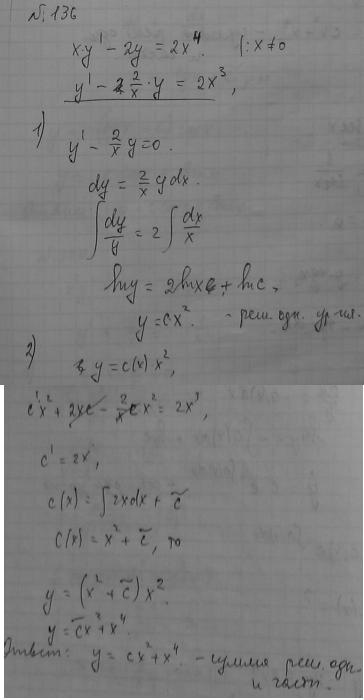 № 136
x·y' - 2y = 2x⁴. |: x ≠ 0
y' - 2/x · y = 2x³,
1)
y' - 2/x y = 0.
dy = 2/x y dx.
∫ dy/y = 2 ∫ dx/x
ln y = 2 ln x + ln c,
y = cx². - реш. одн. ур-ия.
2)
y = c(x) x²,
c'x² + 2xc - 2/x c x² = 2x³,
c' = 2x,
c(x) = ∫ 2x dx + c̃
c(x) = x² + c̃, то
y = (x² + c̃) x².
y = c̃x² + x⁴.
Ответ: y = cx² + x⁴. - сумма реш. одн.
и частн.